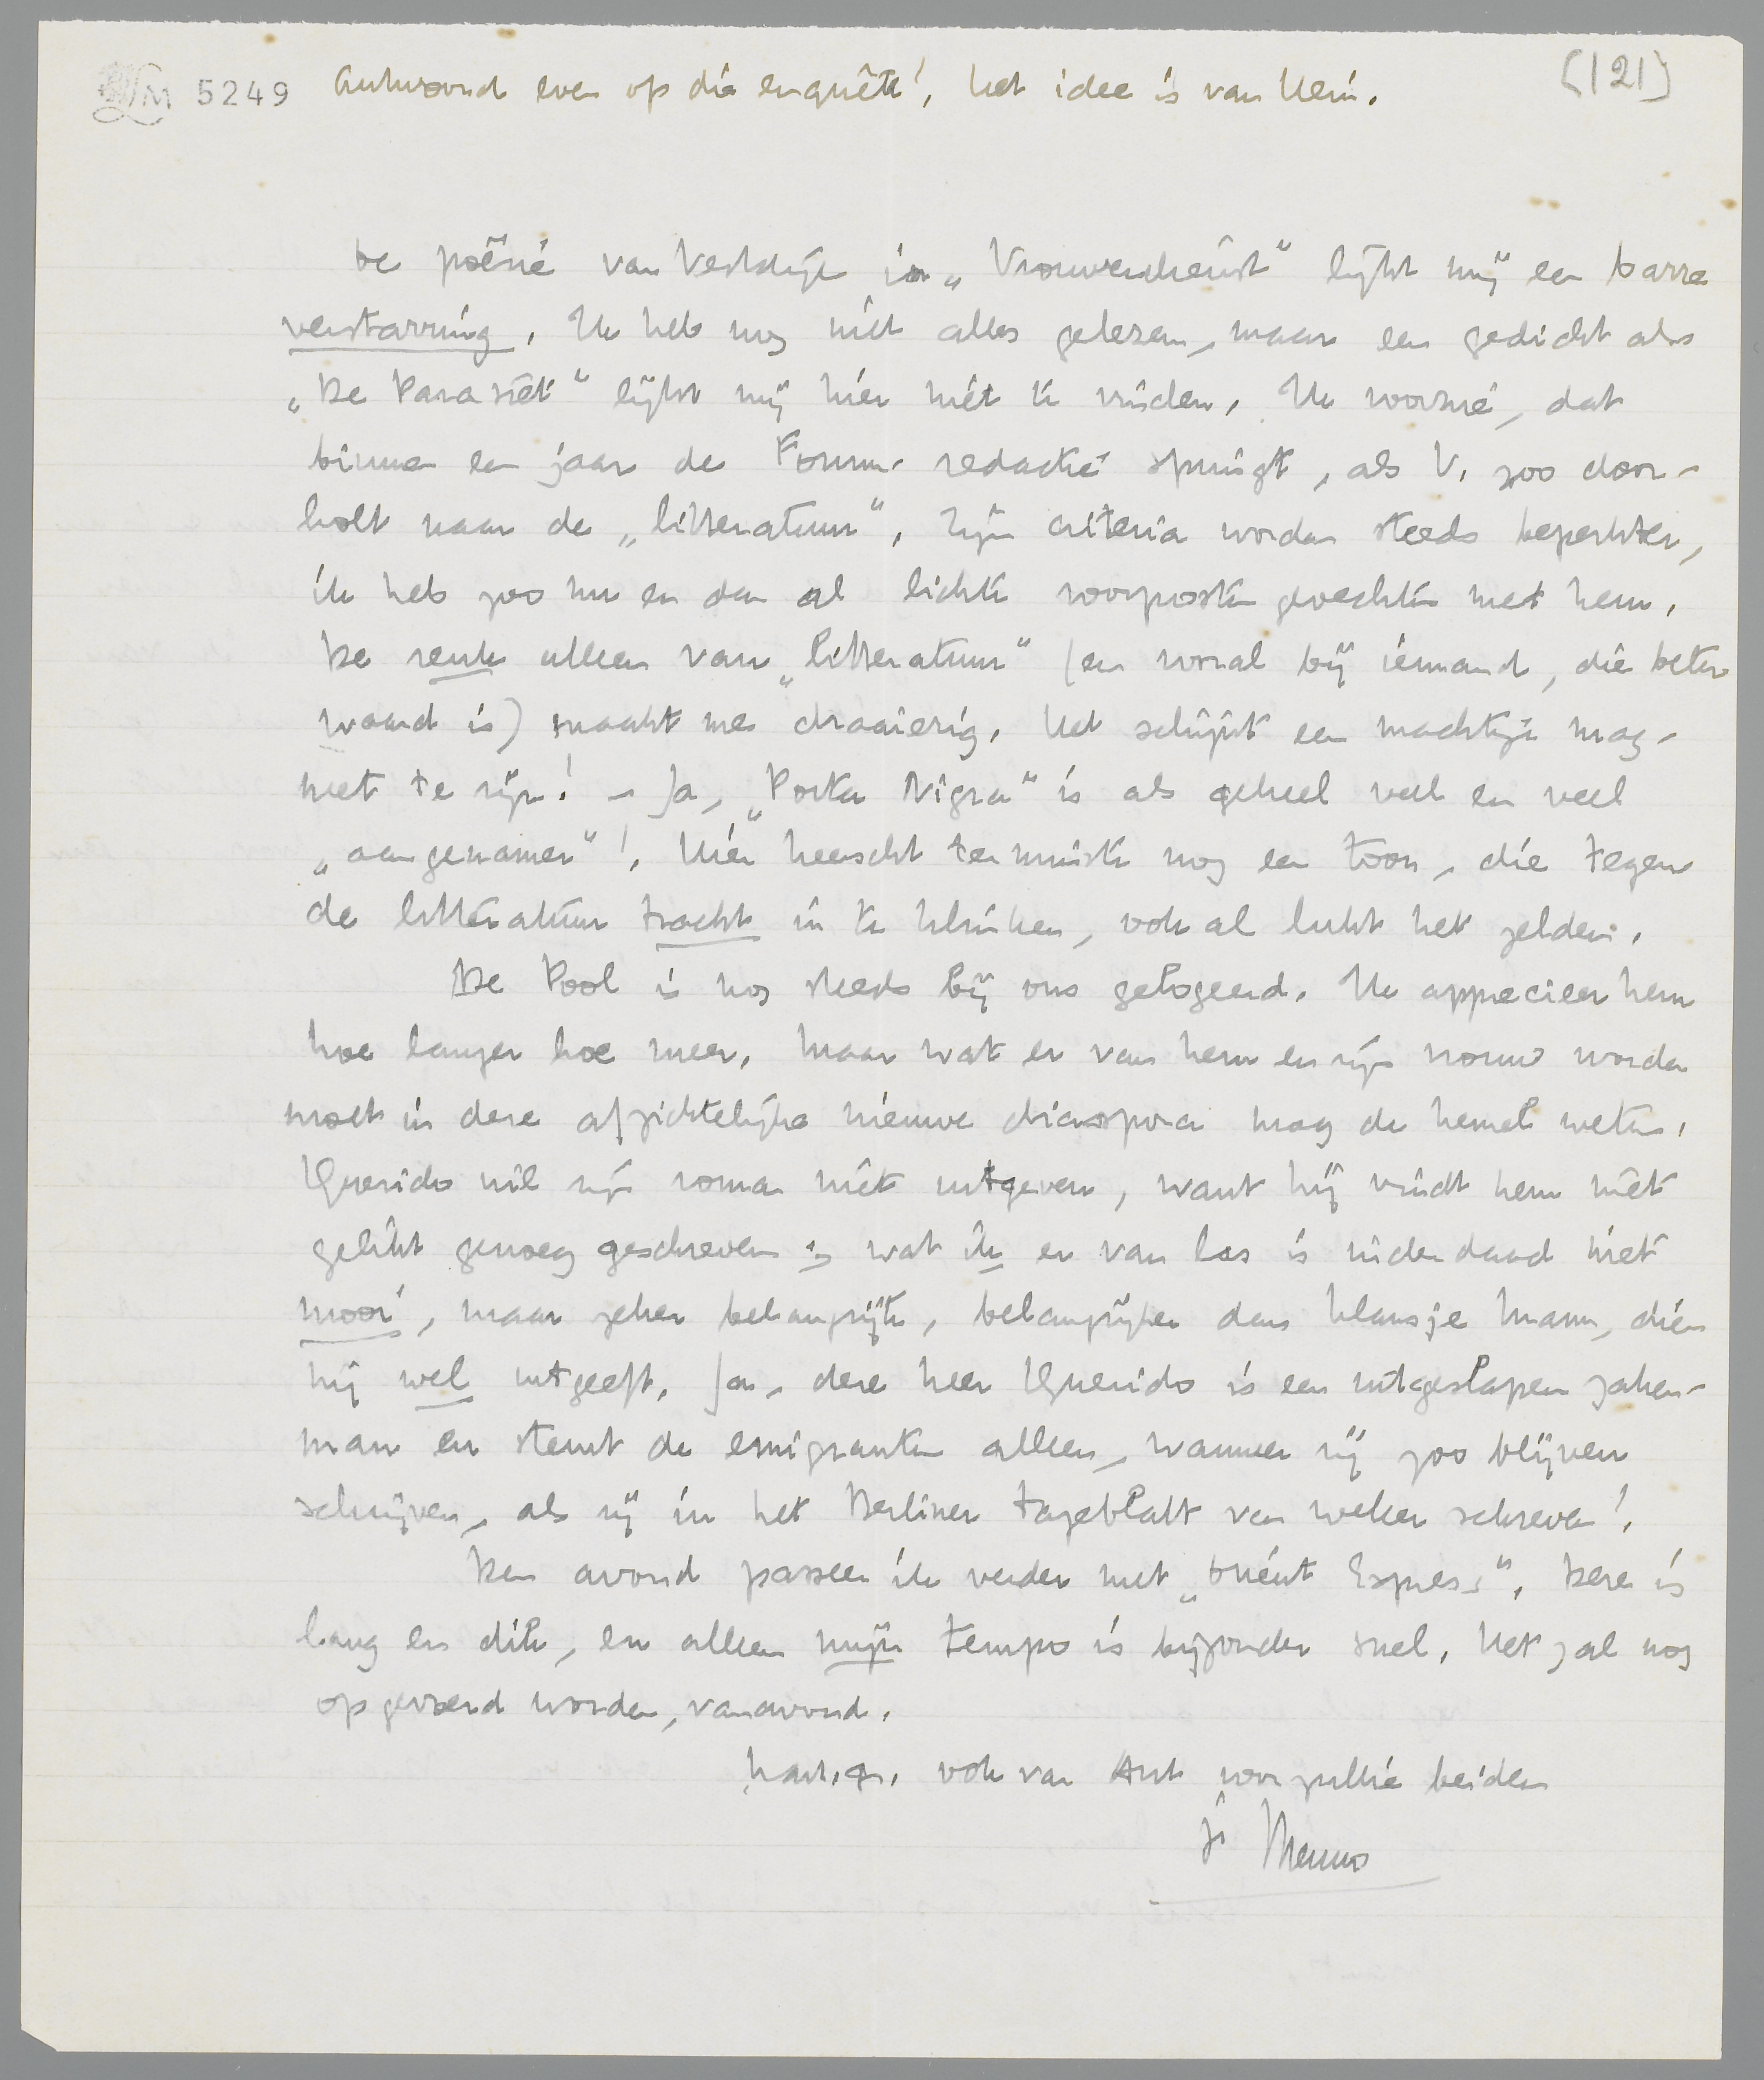 LM 5249 Antwoord even op die enquête!, het idee is van Hein.
(121)
De poëzie van Vestdijk in „Vrouwendienst" lijkt mij een barre
verstarring. Ik heb nog niet alles gelezen, maar een gedicht als
„De Parasiet" lijkt mij hier niet te vinden. Ik voorzie, dat
binnen een jaar de Forum-redactie springt, als V. zoo door-
holt naar de „litteratuur". Zijn criteria worden steeds beperkter,
ik heb zoo nu en dan al lichte voorpostengevechten met hem.
De reuk alleen van „litteratuur" (en vooral bij iemand, die beter
waard is) maakt me draaierig. Het schijnt een machtige mag-
neet te zijn! – Ja, „Porta Nigra" is als geheel veel en veel
„aangenamer"! Hier heerscht tenminste nog een toon, die tegen
de litteratuur tracht in te klinken, ook al lukt het zelden.
De Pool is nog steeds bij ons gelogeerd. Ik apprecieer hem
hoe langer hoe meer. Maar wat er van hem en zijn vrouw worden
moet in deze afzichtelijke nieuwe diaspora mag de hemel weten.
Querido wil zijn roman niet uitgeven, want hij vindt hem niet
gelikt genoeg geschreven; wat ik er van las is inderdaad niet
mooi, maar zeker belangrijk, belangrijker dan Klausje Mann, dien
hij wel uitgeeft. Ja, deze heer Querido is een uitgeslapen zaken-
man en steunt de emigranten alleen, wanneer zij zoo blijven
schrijven, als zij in het Berliner Tageblatt van weleer schreven!
Den avond passeer ik verder met „Orient Express". Deze is
lang en dik, en alleen mijn tempo is bijzonder snel. Het zal nog
opgevoerd worden, vanavond.
hart. gr. ook van Ant voor jullie beiden
je Menno